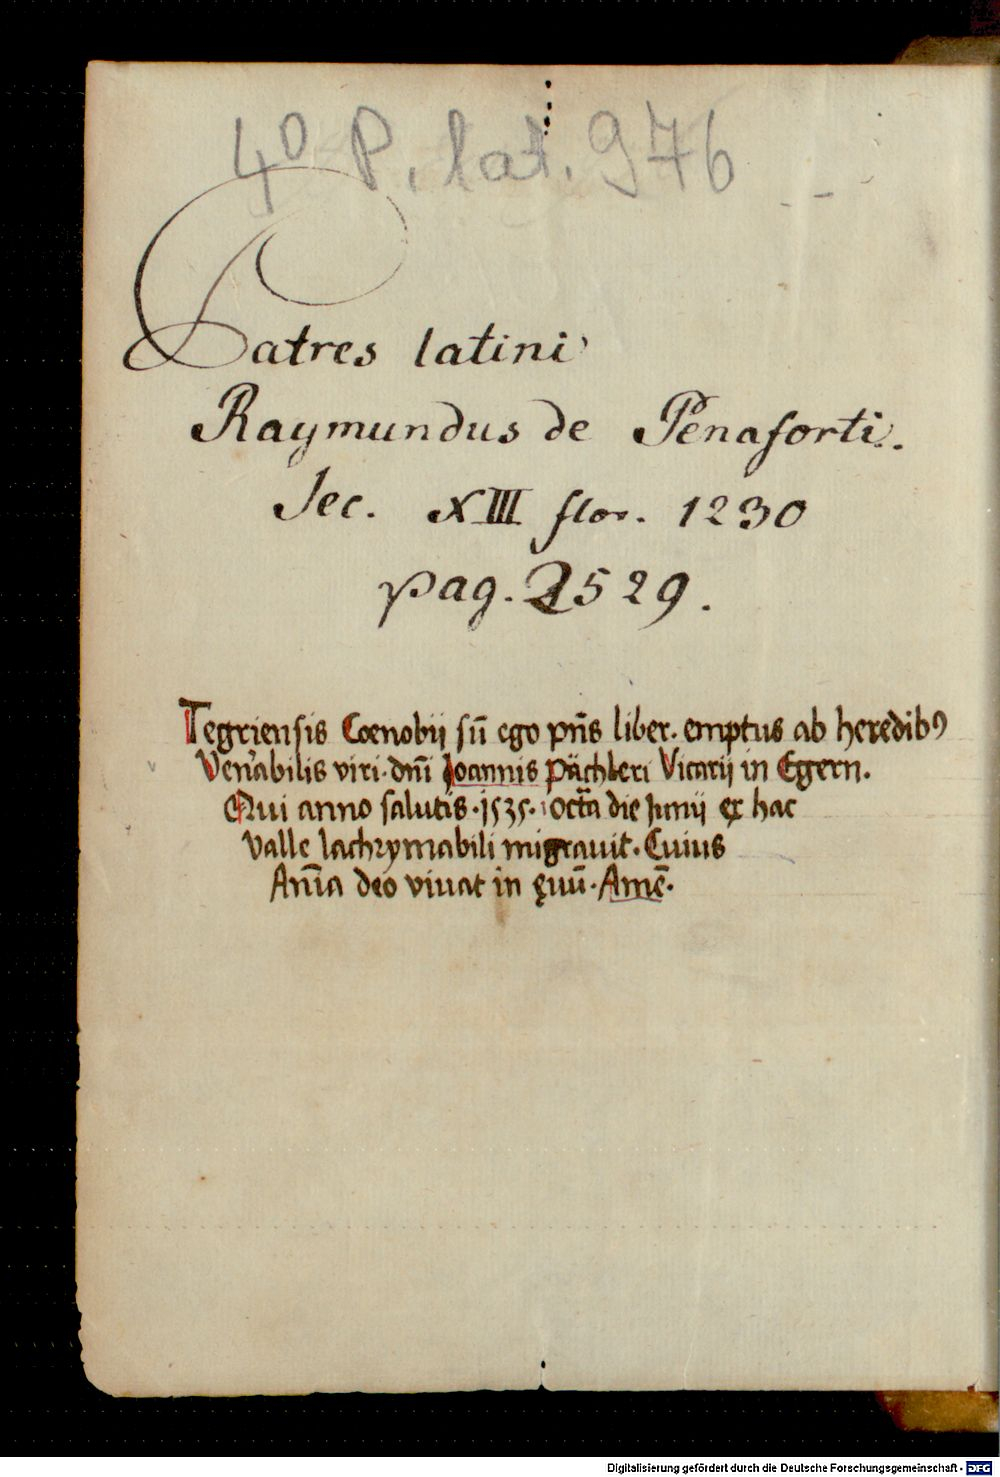 4° P. lat. 976
Patres latini
Raymundus de Penaforti.
Sec. XIII flor. 1230
pag. 2529.
Tegriensis Coenobij sū ego pn̄s liber. emptus ab heredibꝰ
Ven̄abilis viri. dn̄i Joannis Pächleri Vicarij in Egern.
Qui anno salutis .1535. Octa̅ die Junij ex hac
valle lachrymabili migrauit. Cuius
An̄ia deo viuat in ęuū. Amē.
Digitalisierung gefördert durch die Deutsche Forschungsgemeinschaft - DFG